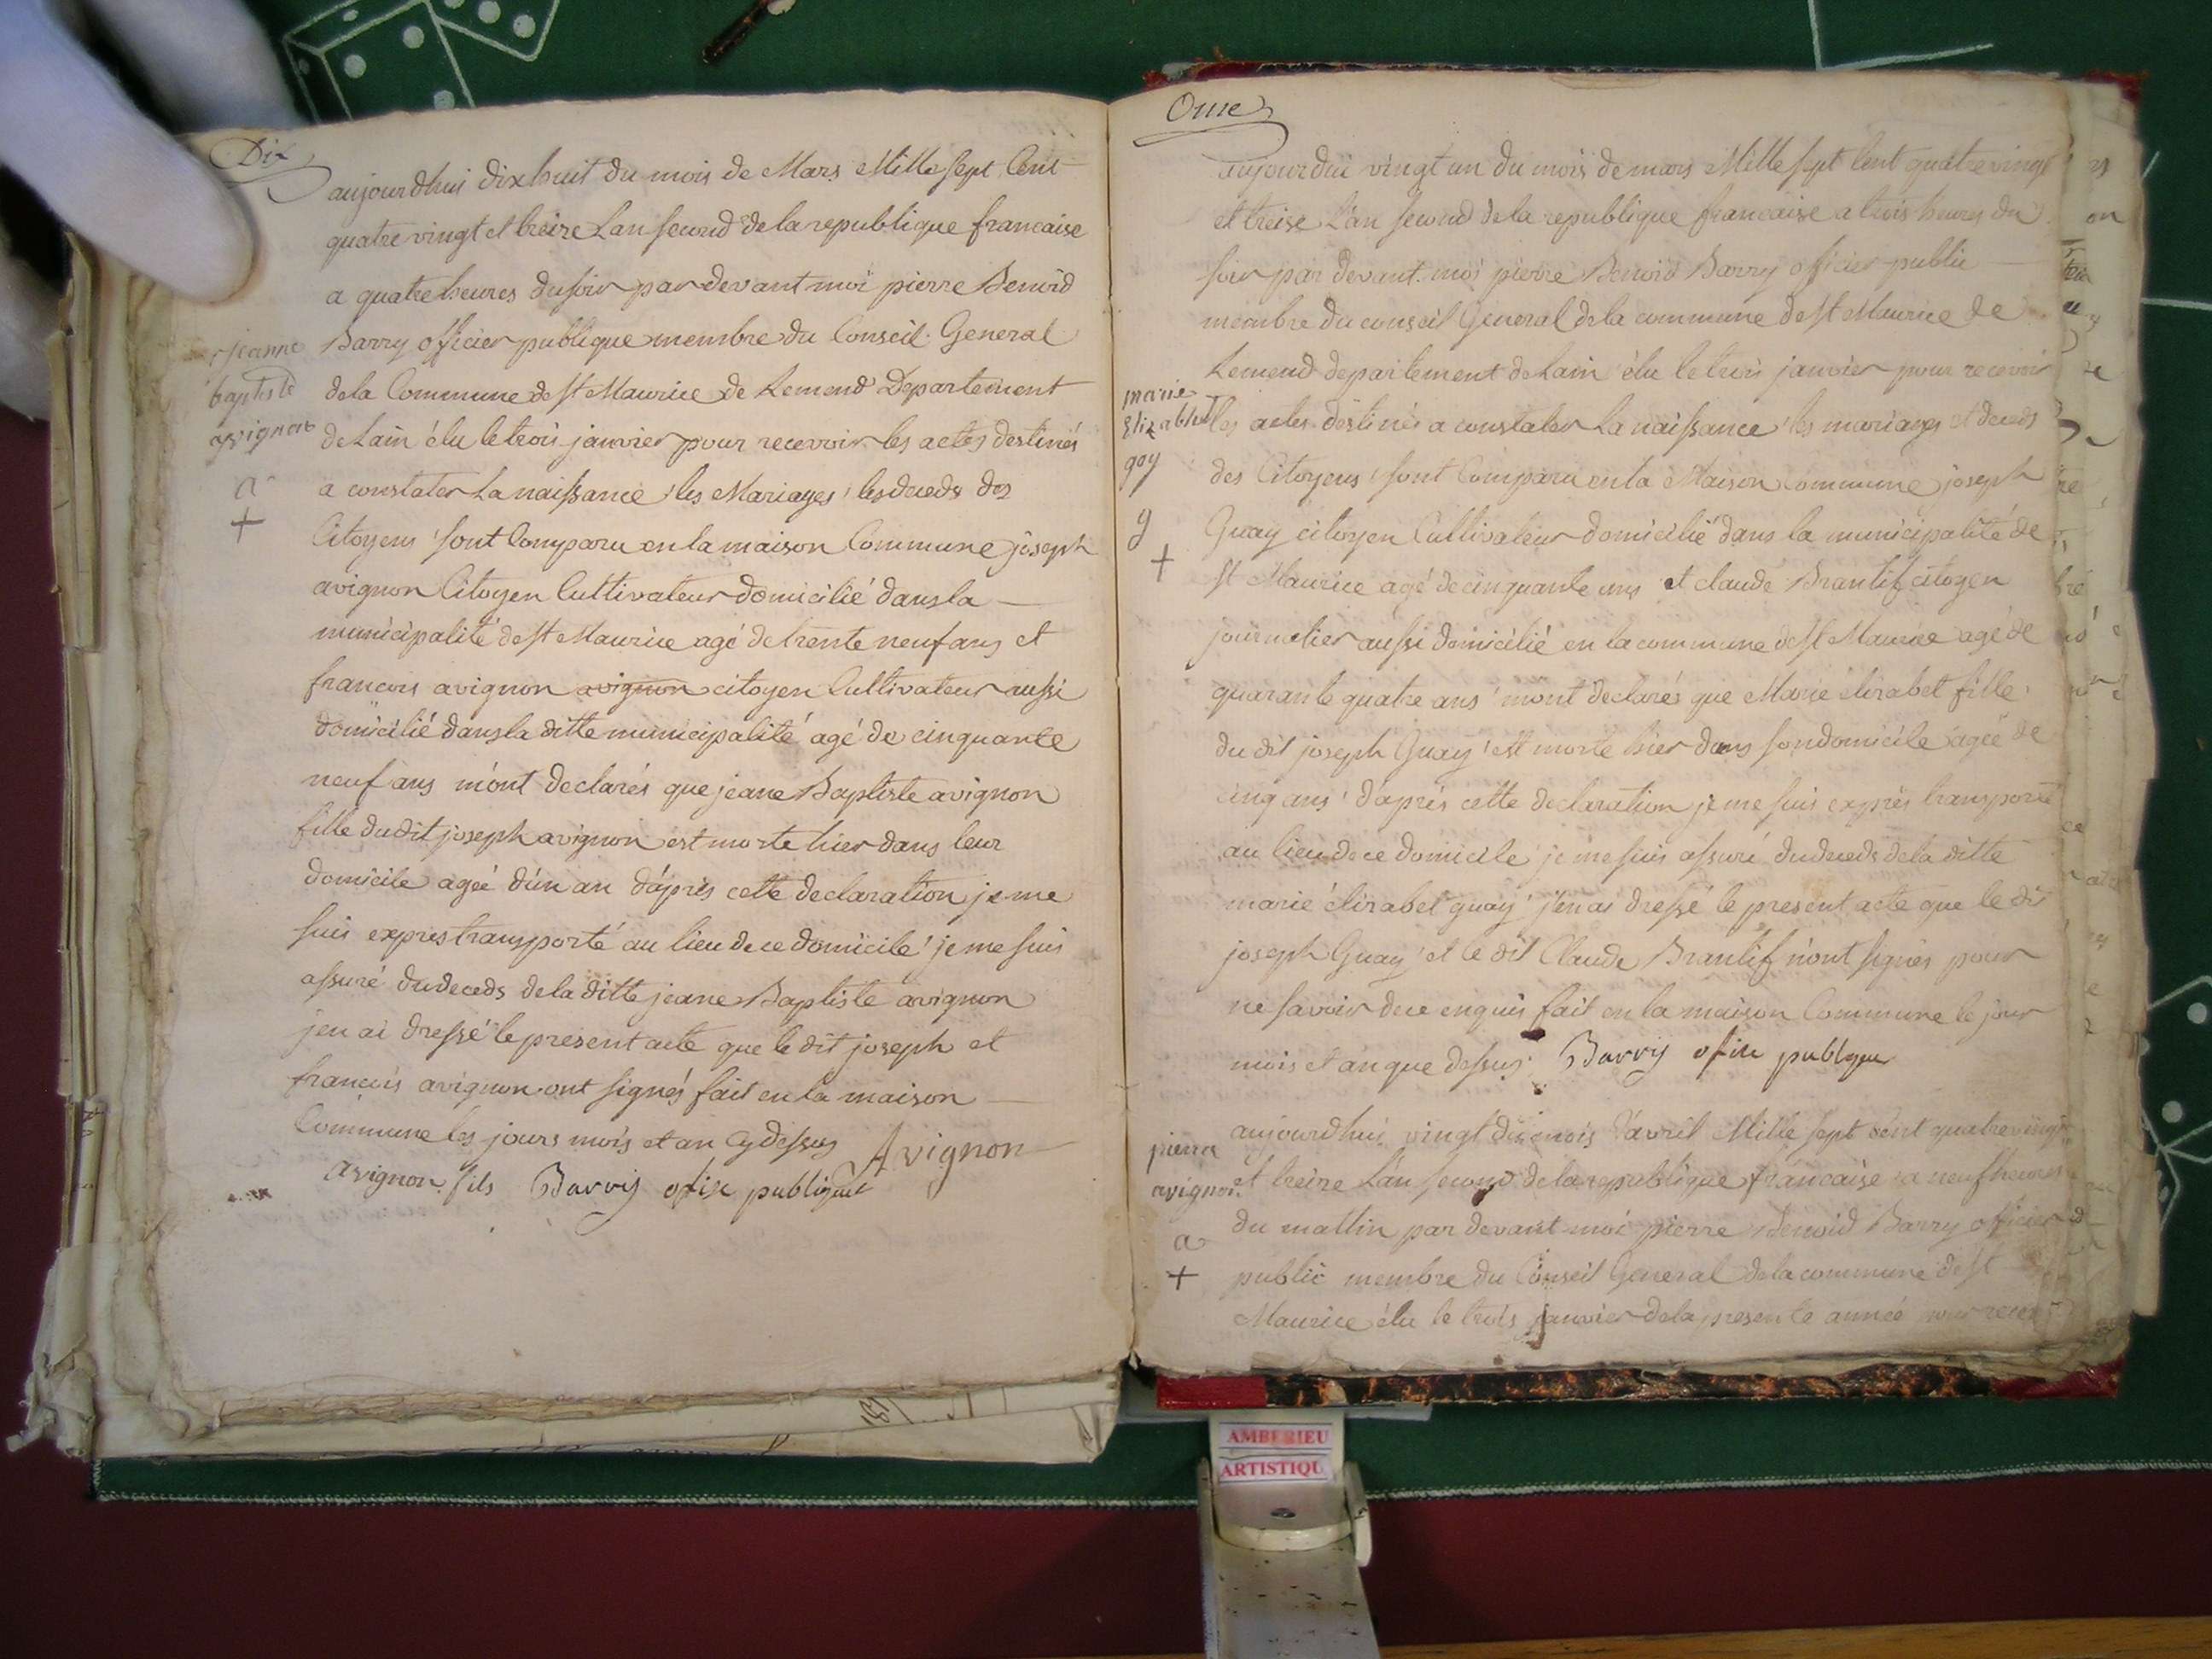 Dix
aujourdhui dix huit du mois de Mars Mille sept Cent
quatre vingt et treize Lan second de la republique francaise
a quatre heures du soir par devant moi pierre Benoid
Barry officier publique membre du Conseil General
de la Commune de St Maurice de Remend Departement
de Lain élu le trois janvier pour recevoir les actes destinés
a constater La naissance les Mariages les deceds des
Citoyens sont Comparu en la maison Commune joseph
avignon Citoyen Cultivateur domicilié dans la
municipalité de St Maurice agé de trente neuf ans et
francois avignon avignon citoyen Cultivateur aussi
domicilié dans la ditte municipalité agé de cinquante
neuf ans m'ont declarés que jeane Baptiste avignon
fille du dit joseph avignon est morte hier dans leur
domicile agée d'un an d'aprés cette declaration je me
suis expres transporté au lieu de ce domicile je me suis
assuré du deceds de la ditte jeane Baptiste avignon
jen ai dressé le present acte que le dit joseph et
francois avignon ont signés fait en la maison
Commune les jours mois et an cy dessus Avignon
avignon fils Barry ofise publique
jeanne
baptiste
avignon
a
+
Onze
aujourdui vingt un du mois de mars Mille sept Cent quatre vingt
et treise L'an second de la republique francaise a trois heures du
soir par devant moi pierre Benoid Barry officier public
membre du conseil General de la commune de St Maurice de
Remend departement de Lain élu le trois janvier pour recevoir
les actes destinés a constater La naissance les mariages et deceds
des Citoyens sont Comparu en la Maison Commune joseph
Guay citoyen Cultivateur domicilié dans la municipalité de
St Maurice agé de cinquante ans et claude Brantif citoyen
journalier aussi domicilié en la commune de St Maurice agé de
quarante quatre ans m'ont declarés que Marie élizabet fille
du dit joseph Guay est morte hier dans son domicile agée de
cinq ans d'aprés cette declaration je me suis exprés transporté
au lieu de ce domicile je me suis assuré du deceds de la ditte
marie élizabet guay j'en ai dressé le present acte que le dit
joseph Guay et le dit Claude Brantif n'ont signés pour
ne savoir de ce enquis fait en la maison Commune le jour
mois et an que dessus Barry ofise publique
marie
Elizabhet
goy
g
+
aujourdhui vingt dixenois d'avril Mille sept cent quatre vingt
et treize L'an second de la republique francaise a neuf heures
du mattin par devant moi pierre Benoid Barry officier
public membre du Conseil General de la commune de St
Maurice élu le trois janvier de la presente année pour recevoir
pierre
avignon
a
+
AMBERIEU
ARTISTIQU